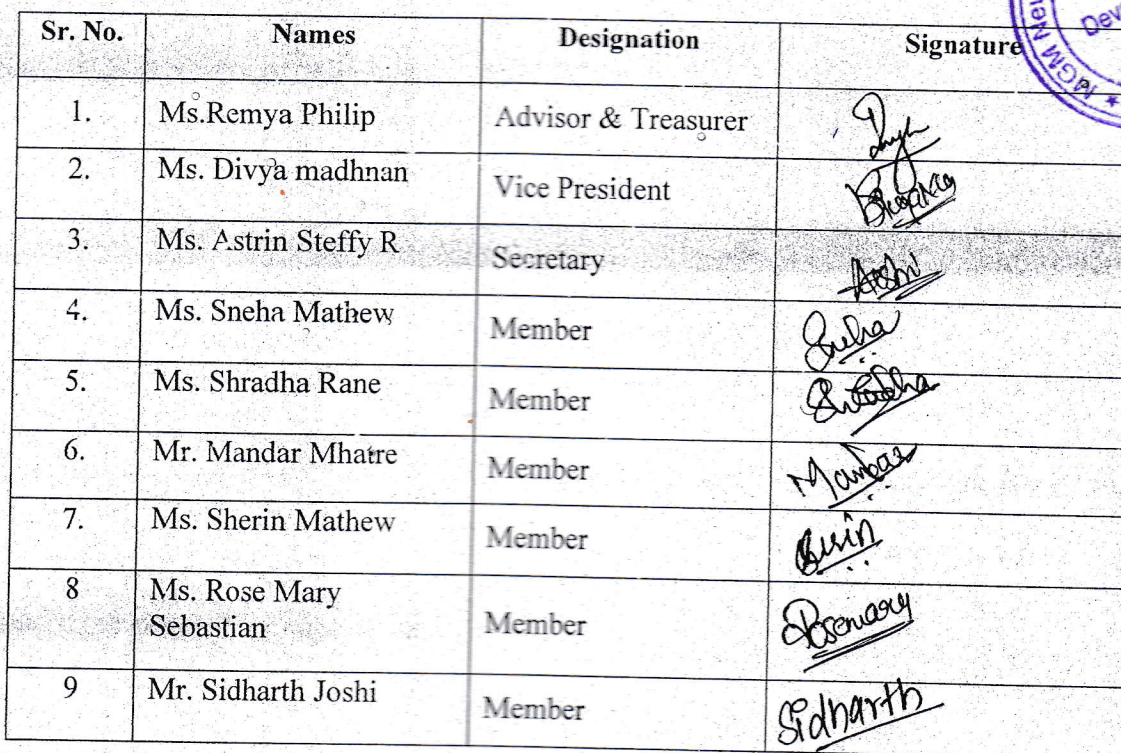 Sr. No. Names Designation Signature
MGM Ne
Dev
1. Ms.Remya Philip Advisor & Treasurer
2. Ms. Divya madhnan Vice President
3. Ms. Astrin Steffy R Secretary
4. Ms. Sneha Mathew Member Sneha
5. Ms. Shradha Rane Member Shradha
6. Mr. Mandar Mhatre Member Mandar
7. Ms. Sherin Mathew Member
8 Ms. Rose Mary
Sebastian Member Rosemary
9 Mr. Sidharth Joshi Member Sidharth